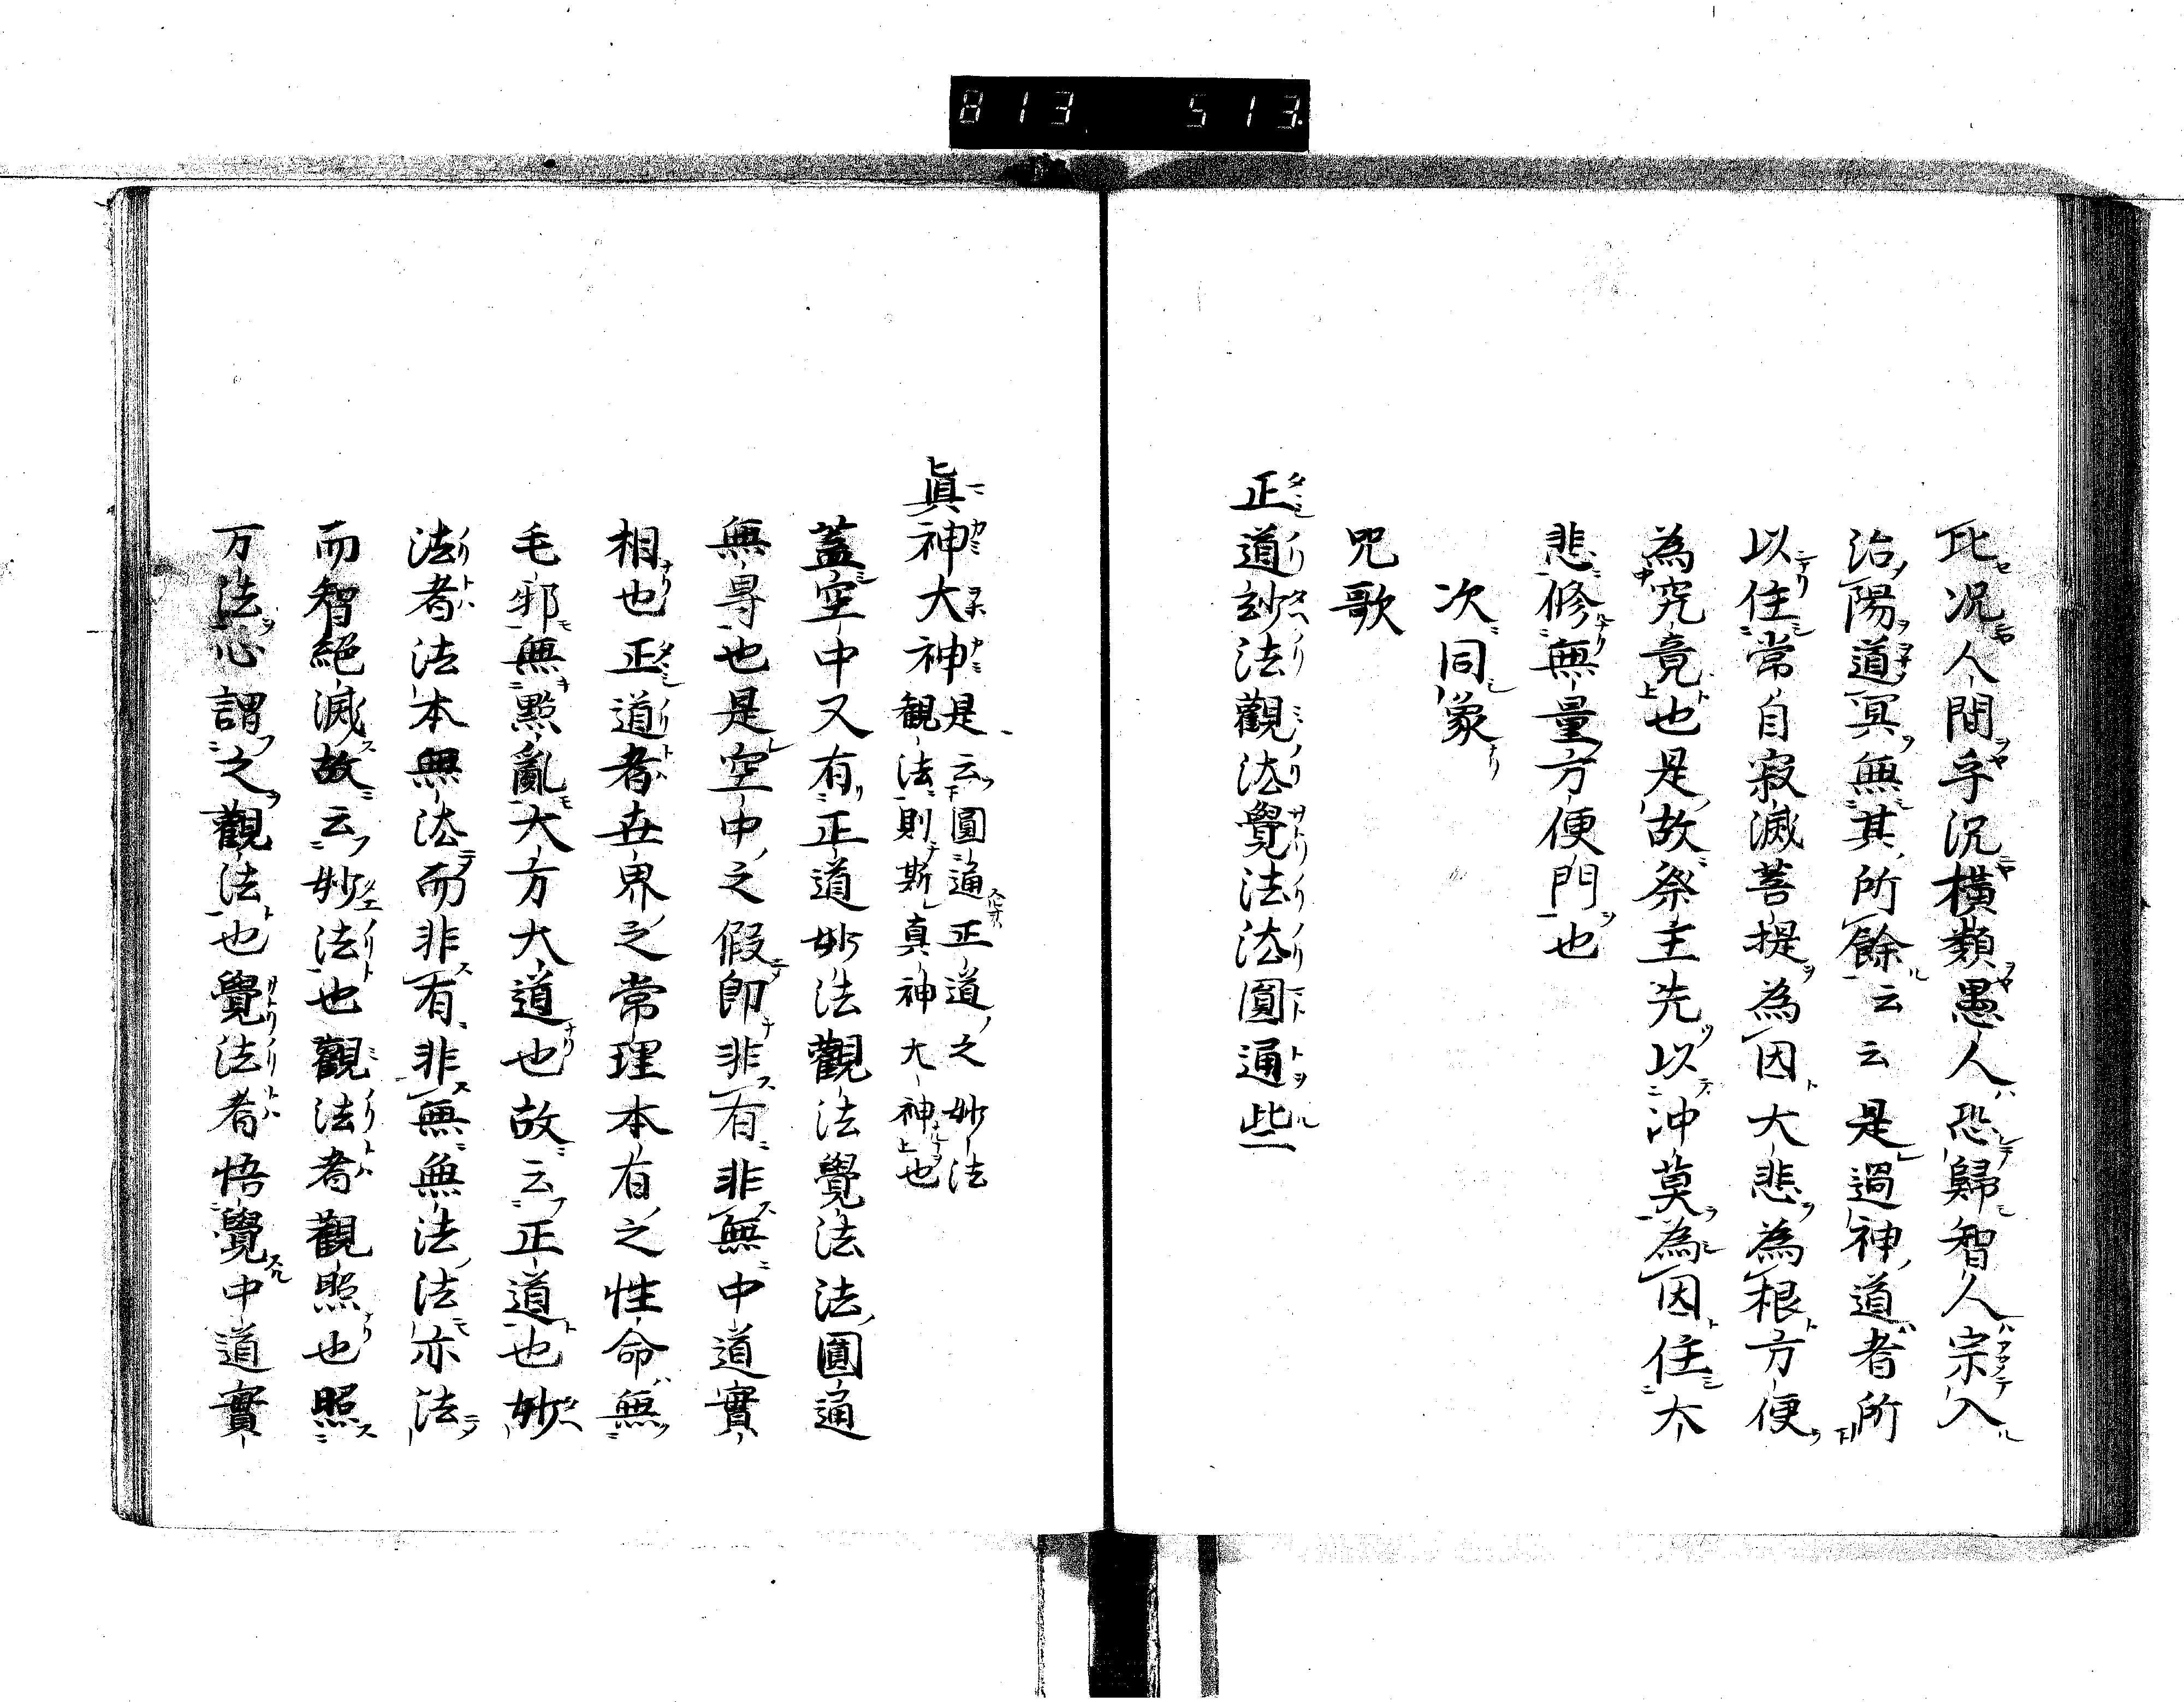 813 513
比况人間乎沉橫類愚人恐歸智人宗入
治陽道冥無其所餘云云是過神道者所
以住常自寂滅菩提為因大悲為根方便
為究竟也是故祭主先以沖莫為因住大
悲修無量方便門也
次同象
咒歌
正道玅法觀法覺法法圓通些
眞神大神是云圓通正道之妙法
觀法則斯真神大神也
蓋空中又有正道妙法觀法覺法法圓通
無㝵也是空中之假即非有非無中道實
相也正道者世界之常理本有之性命無
毛邪無㸃亂大方大道也故云正道也妙
法者法本無法而非有非無無法法亦法
而智絕滅故云妙法也觀法者觀照也照
万法心謂之觀法也覺法者悟覺中道實